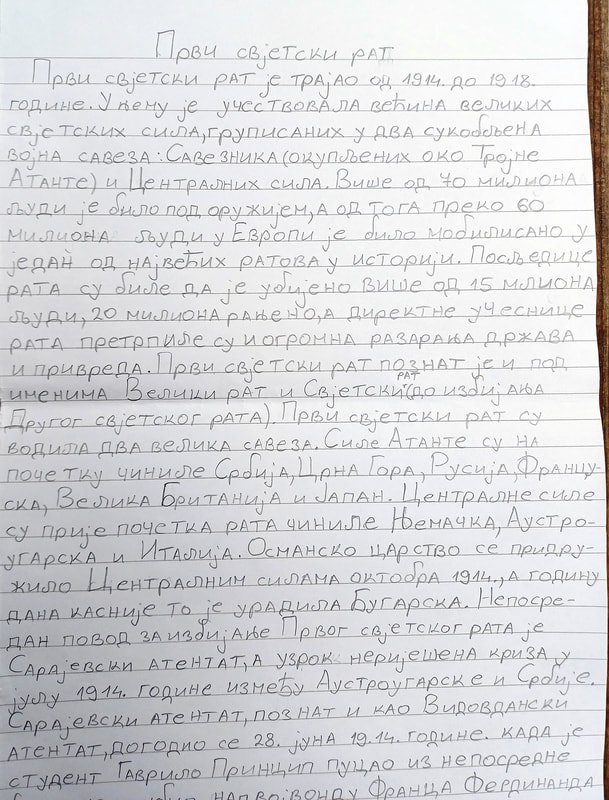 Први свјетски рат
Први свјетски рат је трајао од 1914. до 1918.
године. У њему је учествовала већина великих
свјетских сила, груписаних у два сукобљена
војна савеза: Савезника (окупљених око Тројне
Атанте) и Централних сила. Више од 70 милиона
људи је било под оружијем, а од тога преко 60
милиона људи у Европи је било мобилисано у
један од највећих ратова у историји. Посљедице
рата су биле да је убијено више од 15 млиона
људи, 20 милиона рањено, а директне учеснице
рата претрпиле су и огромна разарања држава
и привреда. Први свјетски рат познат је и под
именима Велики рат и Свјетски рат (до избијања
Другог свјетског рата). Први свјетски рат су
водила два велика савеза. Силе Атанте су на
почетку чиниле Србија, Црна Гора, Русија, Францу-
ска, Велика Британија и Јапан. Централне силе
су прије почетка рата чиниле Њемачка, Аустро-
угарска и Италија. Османско царство се придру-
жило Централним силама октобра 1914., а годину
дана касније то је урадила Бугарска. Непосре-
дан повод за избијање Првог свјетског рата је
Сарајевски атентат, а узрок неријешена криза у
јулу 1914. године између Аустроугарске и Србије.
Сарајевски атентат, познат и као Видовдански
атентат, догодио се 28. јуна 1914. године. када је
студент Гаврило Принцип пуцао из непосредне
надвојводу Франца Фердинанда